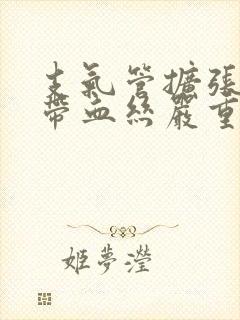 支氣管擴張
帶血絲嚴重
姬夢瀅